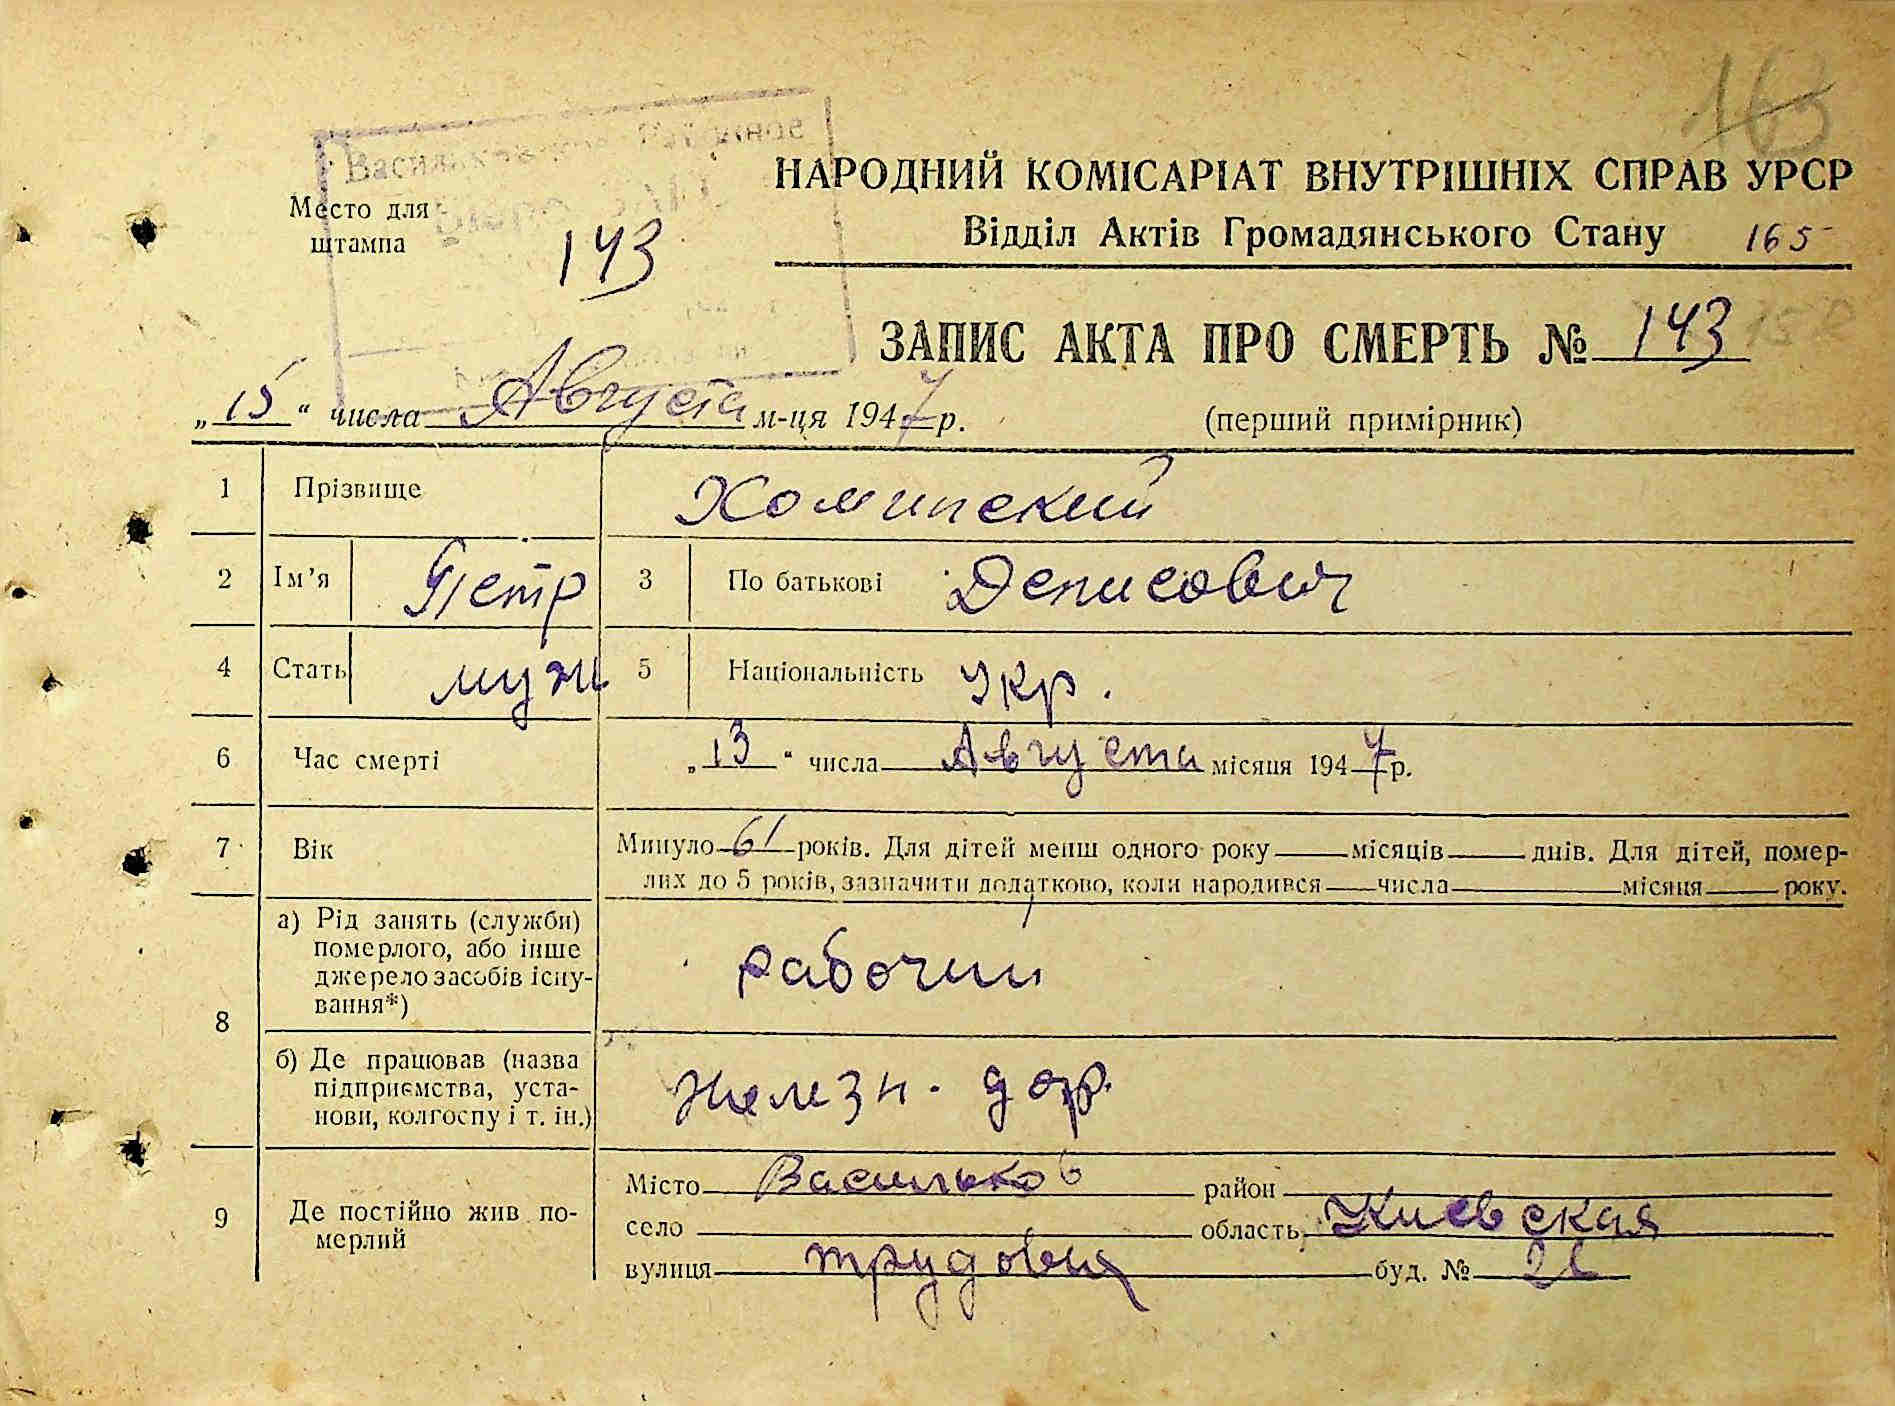 163
НАРОДНИЙ КОМІСАРІАТ ВНУТРІШНІХ СПРАВ УРСР
Відділ Актів Громадянського Стану 165
Место для
штампа
143
ЗАПИС АКТА ПРО СМЕРТЬ № 143
„15“ числа Августа м-ця 1947 р.
(перший примірник)
1 Прізвище Хоминский
2 Ім’я Петр 3 По батькові Денисович
4 Стать муж 5 Національність Укр.
6 Час смерті „13“ числа Августа місяця 1947 р.
7 Вік Минуло 61 років. Для дітей менш одного року місяців днів. Для дітей, помер-
лих до 5 років, зазначити додатково, коли народився числа місяця року.
8 а) Рід занять (служби)
померлого, або інше
джерело засобів існу-
вання*)
рабочий
б) Де працював (назва
підприємства, уста-
нови, колгоспу і т. ін.)
железн. дор.
9 Де постійно жив по-
мерлий
Місто Васильков район
село область Киевская
вулиця трудовая буд. №